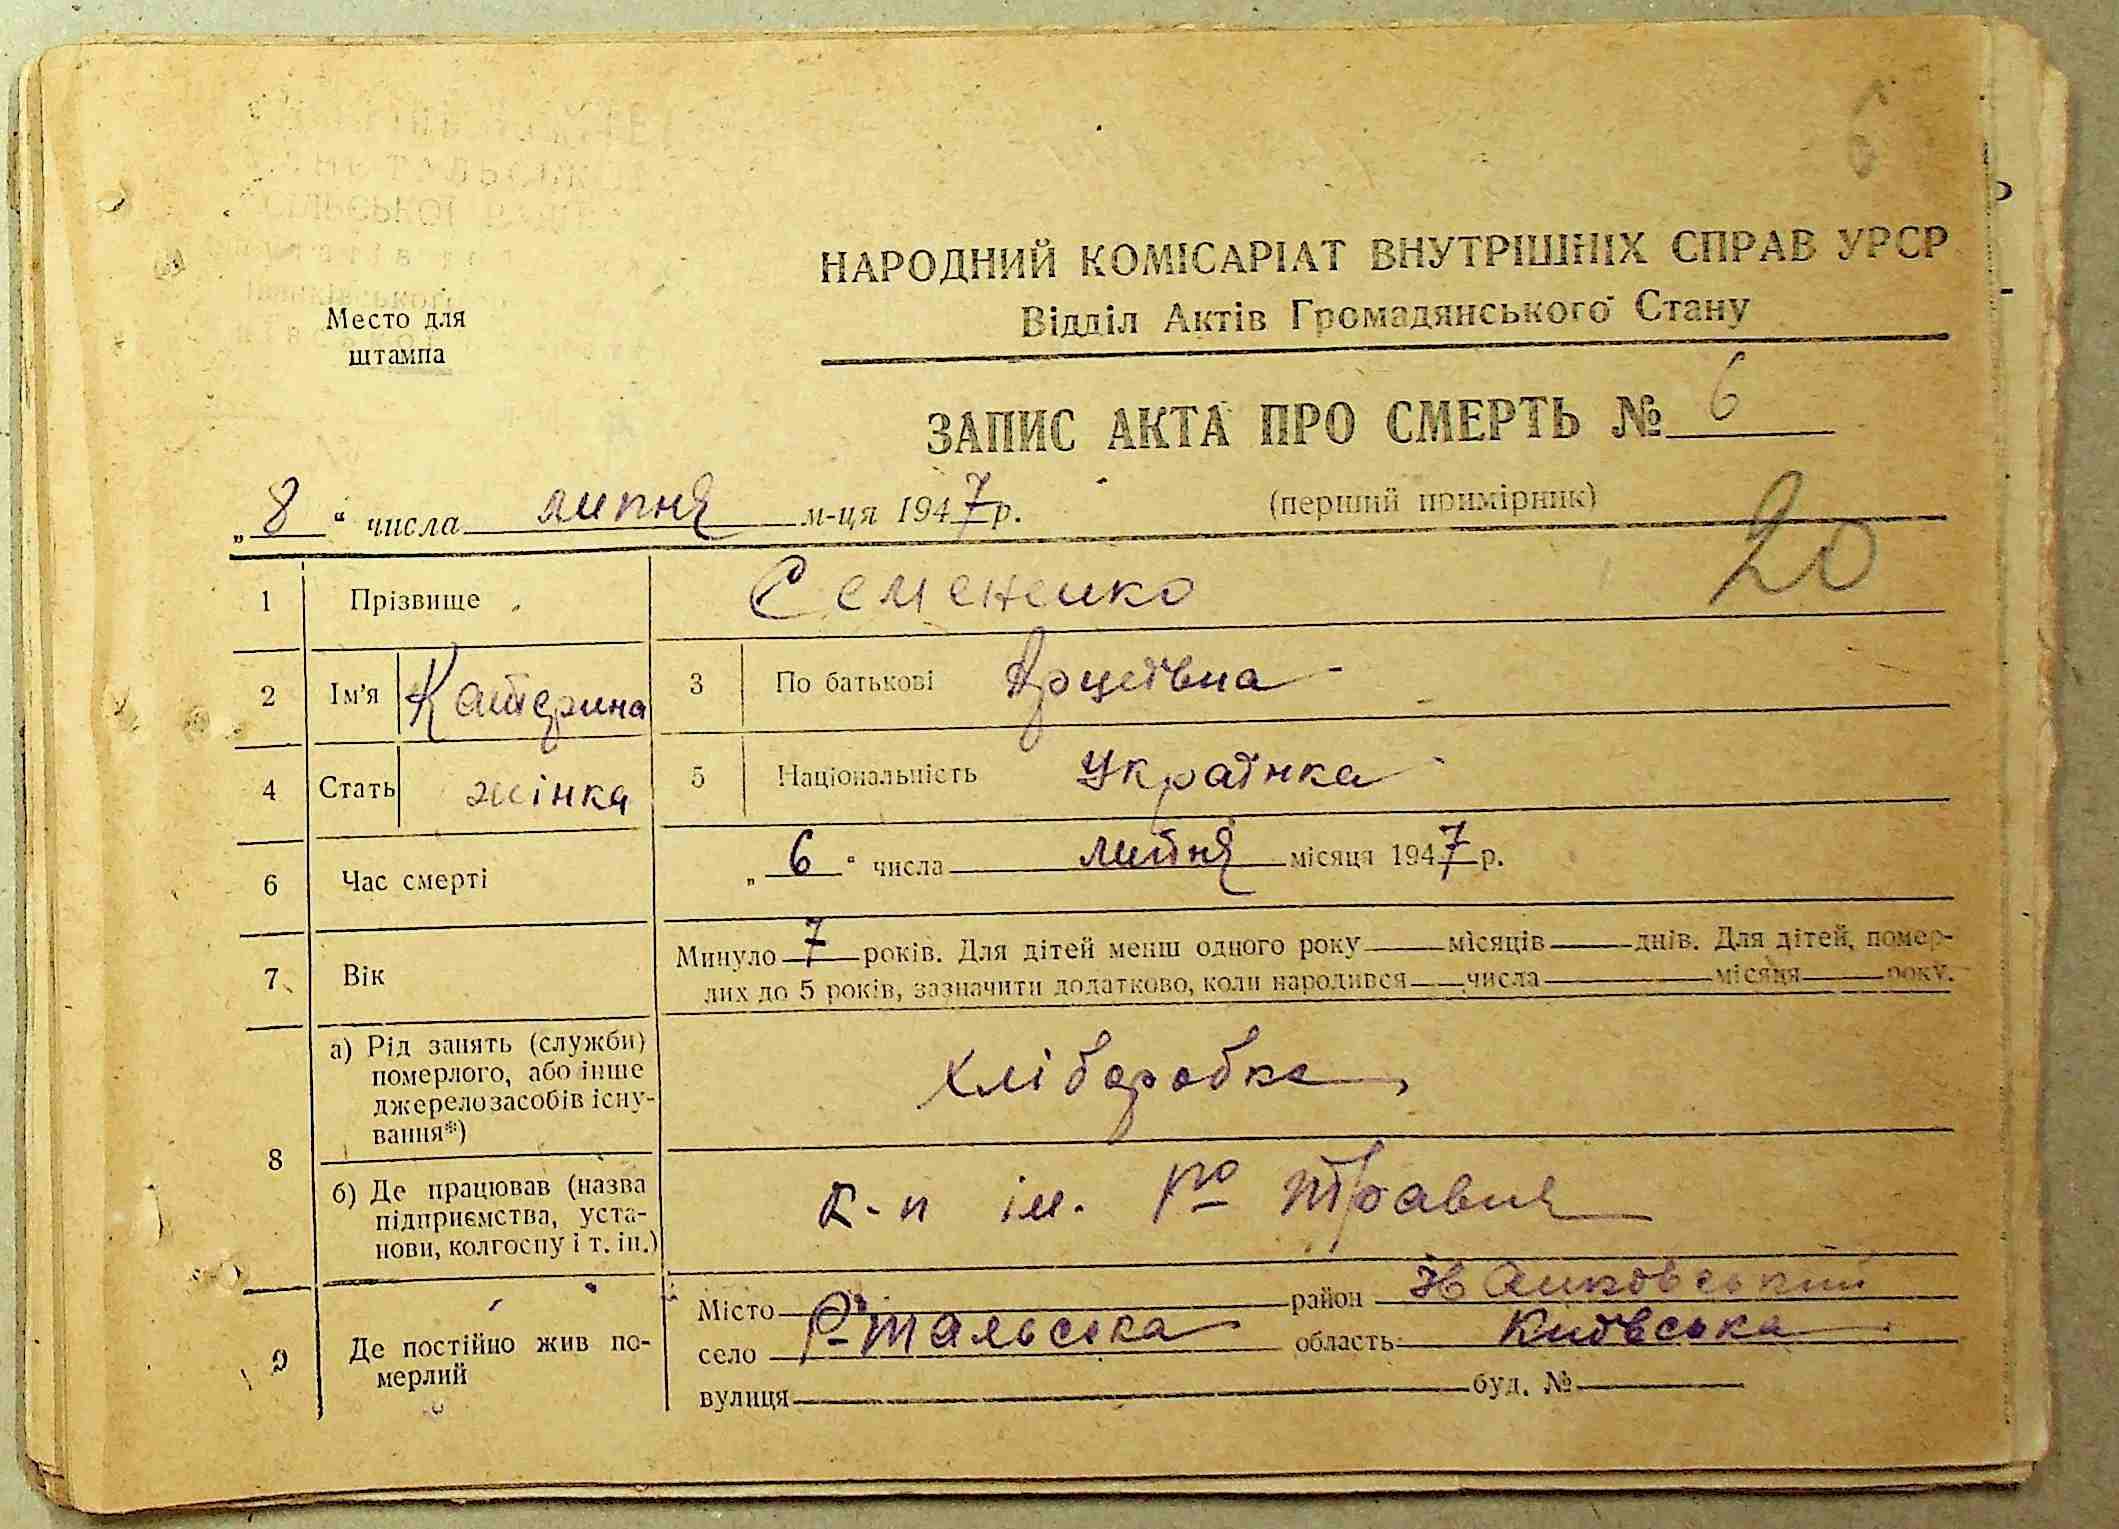 6
НАРОДНИЙ КОМІСАРІАТ ВНУТРІШНІХ СПРАВ УРСР
Відділ Актів Громадянського Стану
Место для
штампа
ЗАПИС АКТА ПРО СМЕРТЬ № 6
„8“ числа липня м-ця 1947 р. (перший примірник)
20
1 Прізвище Семененко
2 Ім'я Катерина 3 По батькові
4 Стать жінка 5 Національність Українка
6 Час смерті „6“ числа липня місяця 1947 р.
7 Вік Минуло 7 років. Для дітей менш одного року місяців днів. Для дітей, помер-
лих до 5 років, зазначити додатково, коли народився числа місяця року.
8 а) Рід занять (служби)
померлого, або інше
джерело засобів існу-
вання*)
хліборобка
б) Де працював (назва
підприємства, уста-
нови, колгоспу і т. ін.)
к-п ім. 1го Травня
9 Де постійно жив по-
мерлий
Місто район
село Р-Тальська область Київська
вулиця буд. №